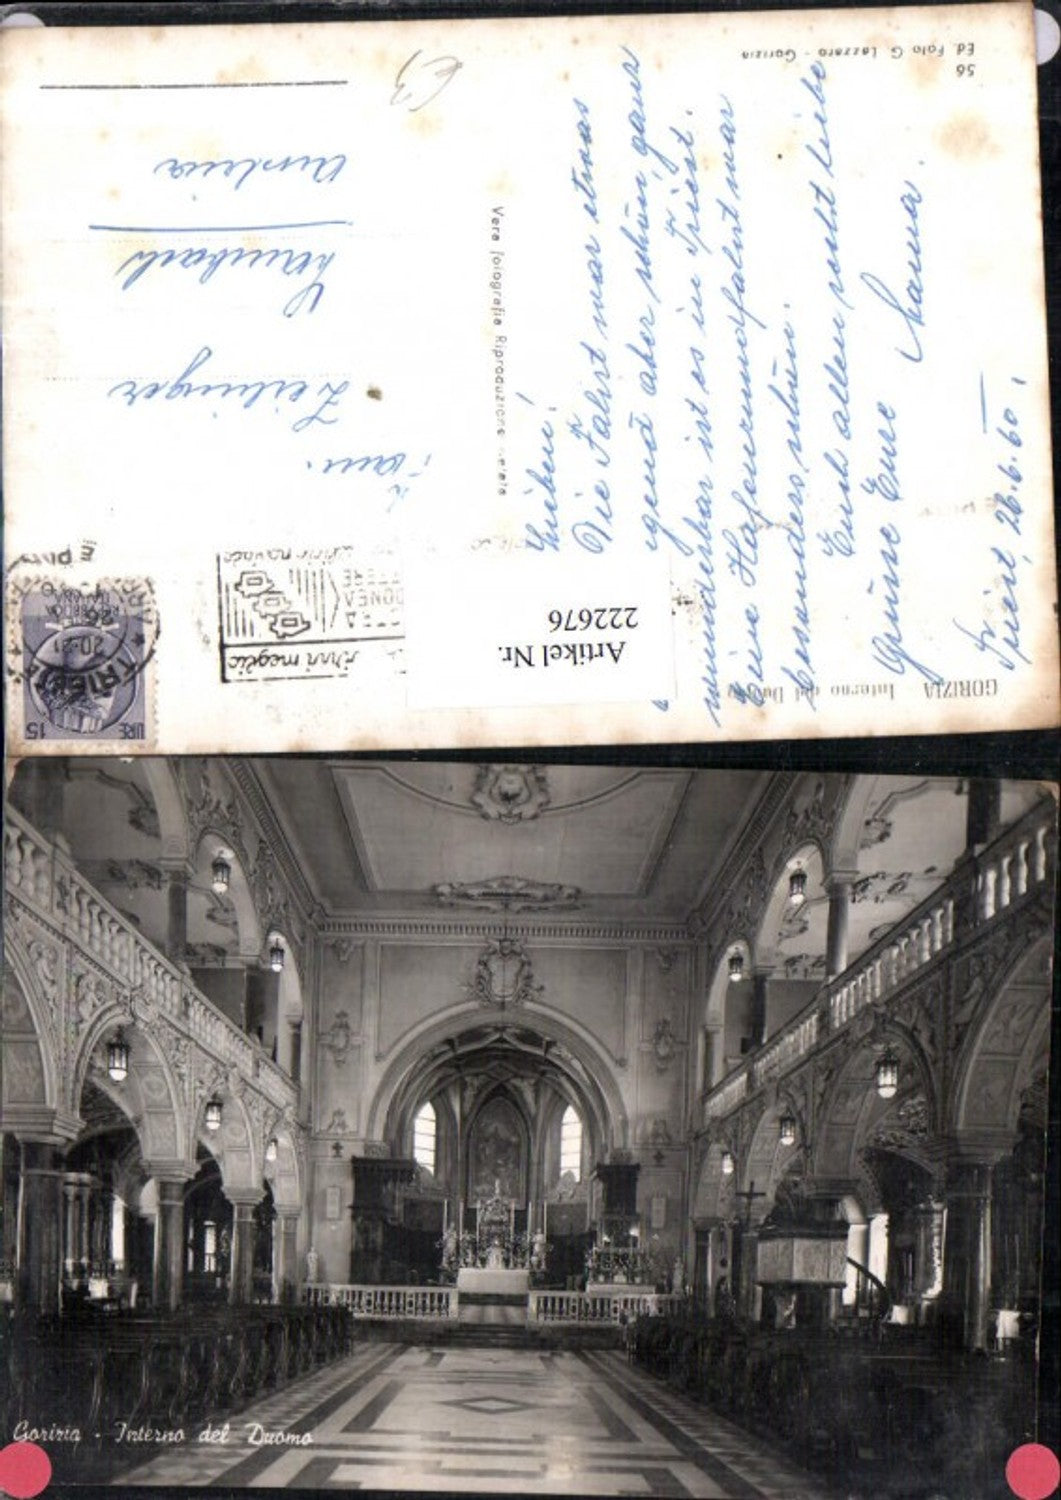 56
Ed. Foto G. Lazzaro - Gorizia
GORIZIA Interno del Duomo
Vera fotografia Riproduzione vietata
Triest, 26.6.60.
Lieben!
Die Fahrt war etwas
igend aber schön, ganz
wunderbar ist es in Triest.
Eine Hafenrundfahrt war
besonders schön.
Euch allen recht liebe
Grüsse Eure
Fam.
Zeilinger
Austria
€3
Artikel Nr.
222676
LIRE 15
REPUBBLICA
ITALIANA
20-21
26
Gorizia - Interno del Duomo